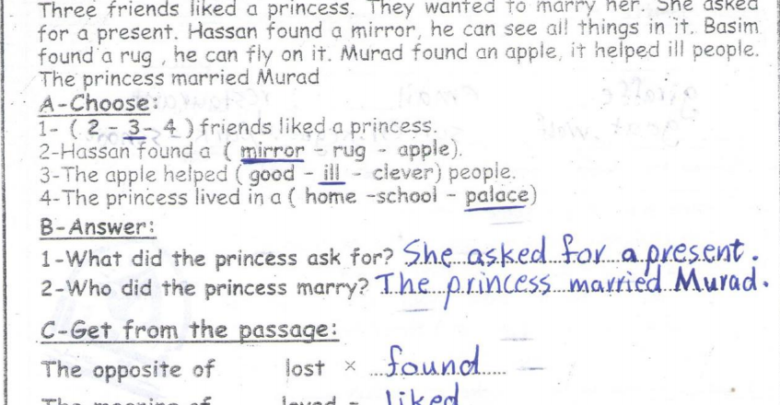 Three friends liked a princess. They wanted to marry her. She asked
for a present. Hassan found a mirror, he can see all things in it. Basim
found a rug , he can fly on it. Murad found an apple, it helped ill people.
The princess married Murad
A-Choose:
1- ( 2 - 3- 4 ) friends liked a princess.
2-Hassan found a ( mirror - rug - apple).
3-The apple helped ( good - ill - clever) people.
4-The princess lived in a ( home -school - palace)
B-Answer:
1-What did the princess ask for? She asked for a present.
2-Who did the princess marry? The princess married Murad.
C-Get from the passage:
The opposite of lost × found
The meaning of loved = liked